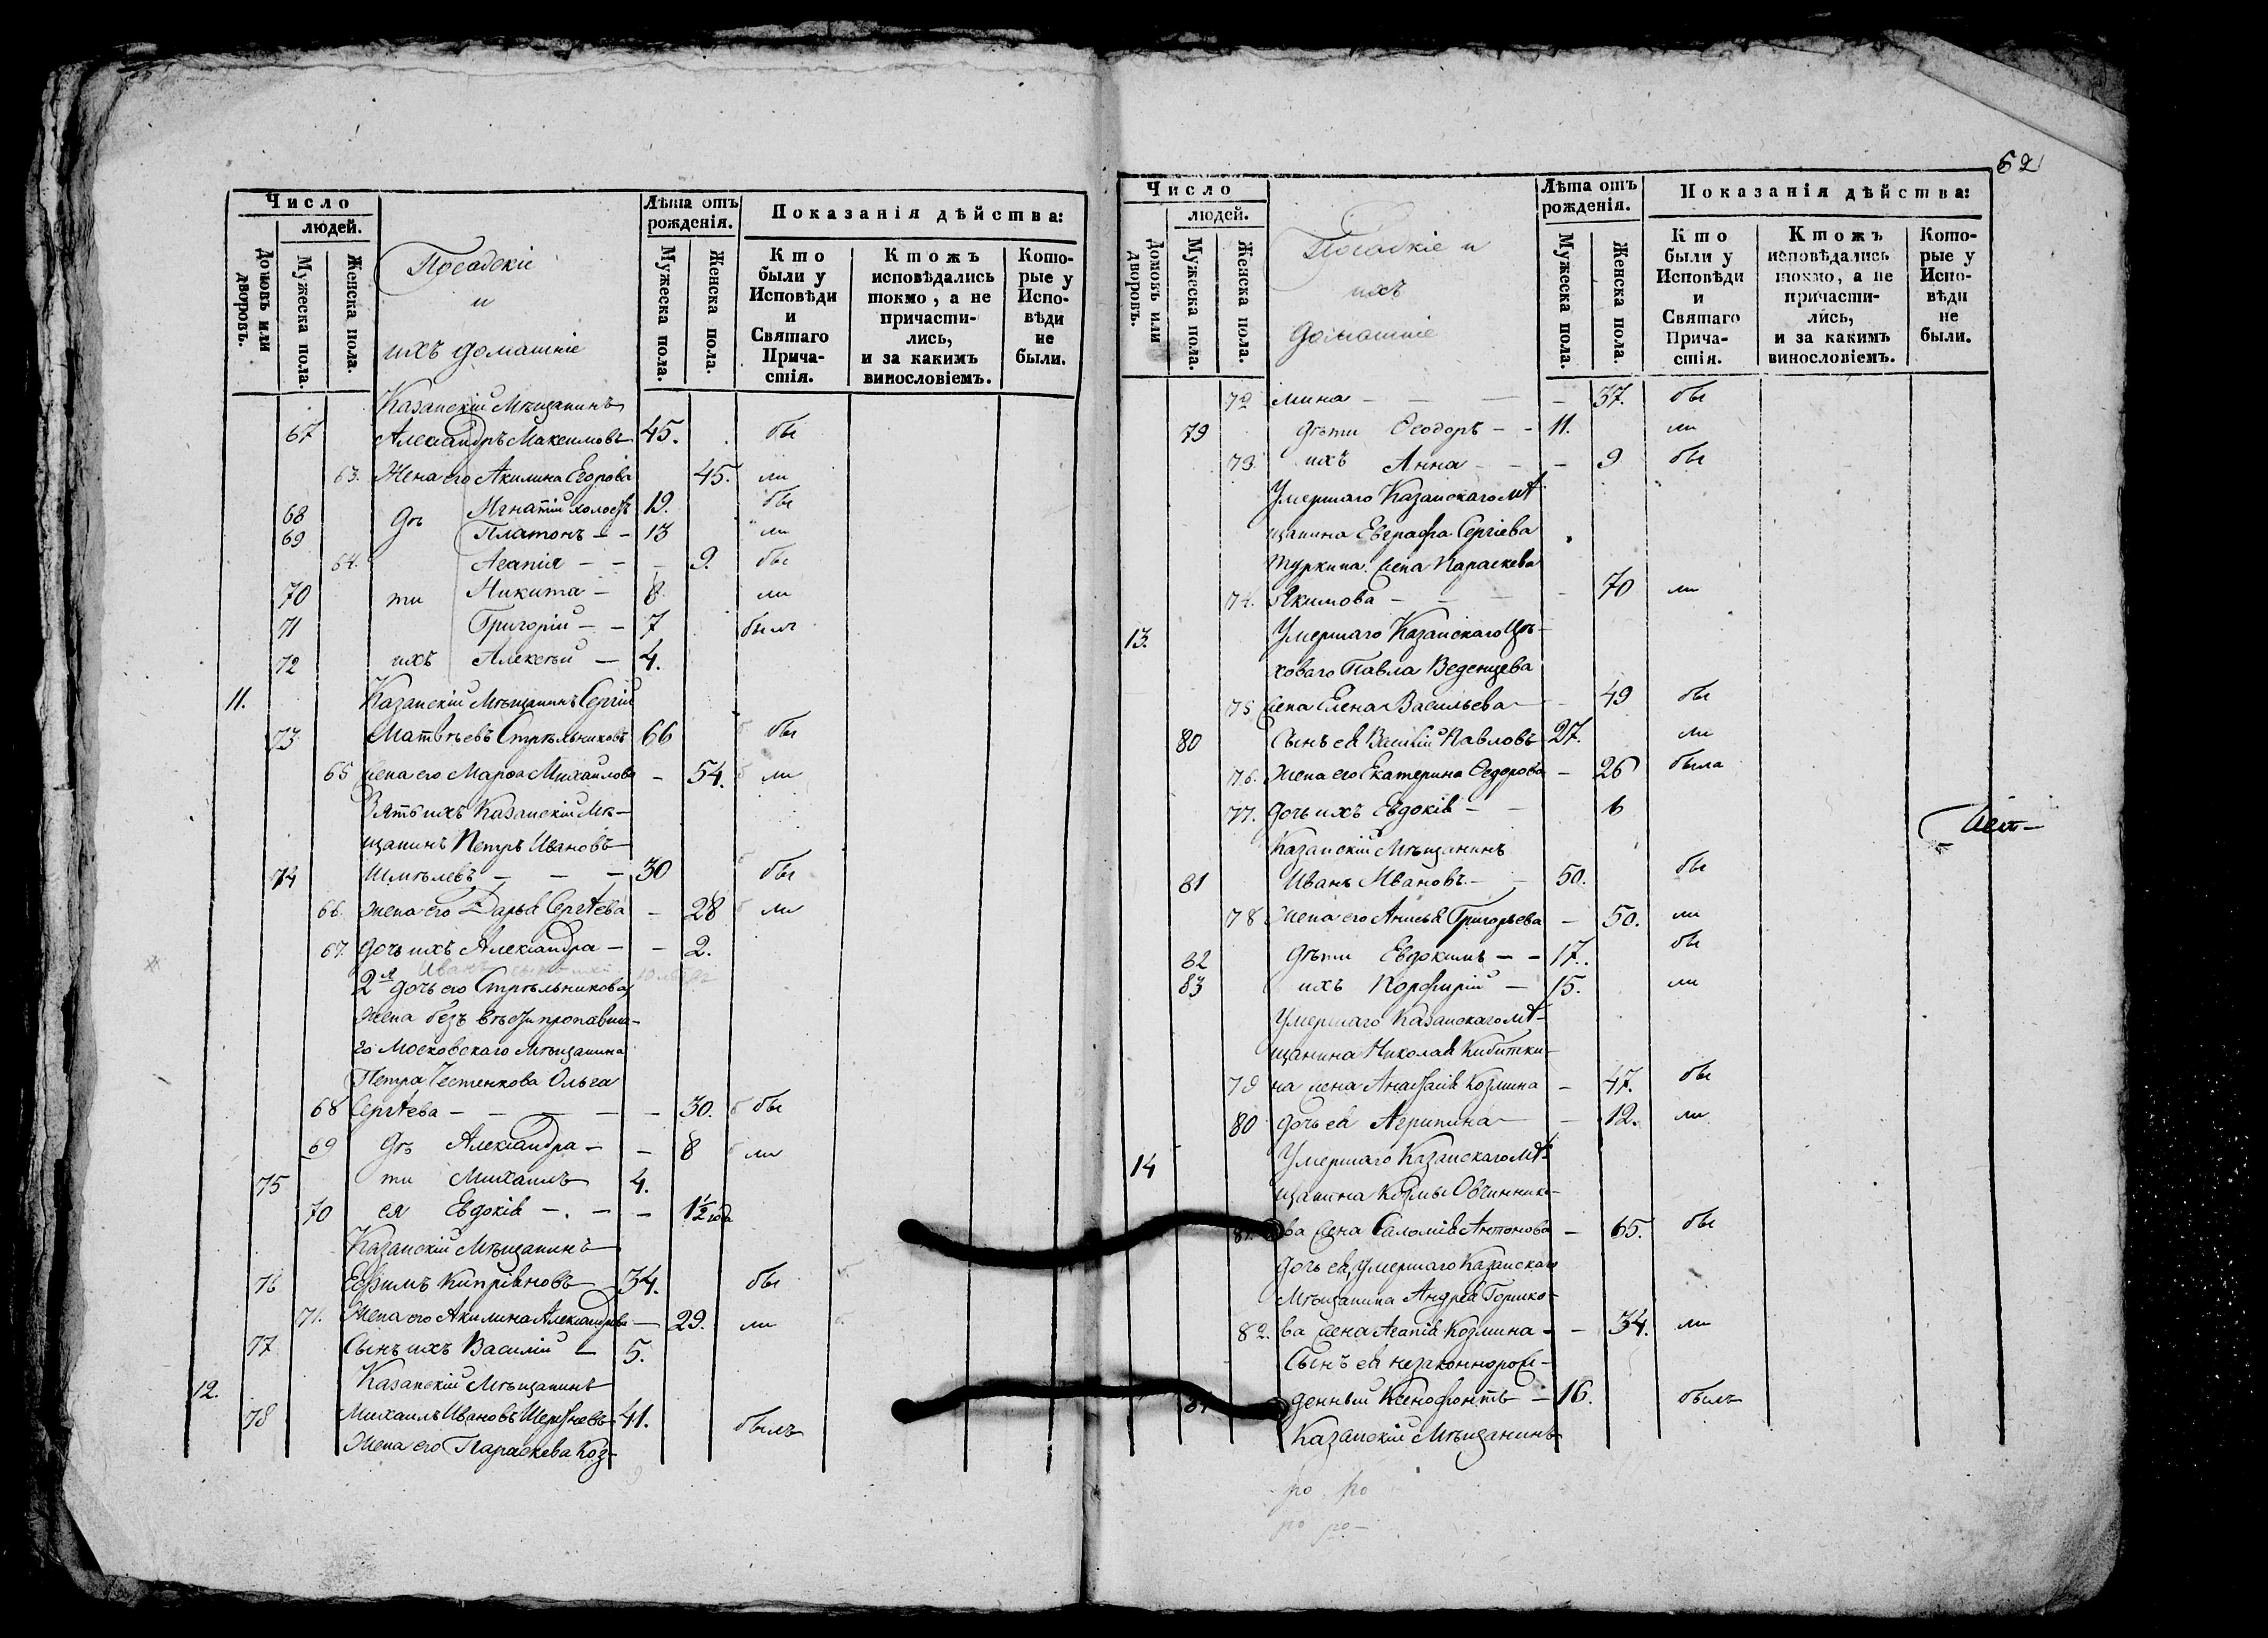 Число
людей.
Домовъ или дворовъ.
Мужеска пола.
Женска пола.
Посадскіе
и
ихъ домашніе
Лѣта отъ рожденія.
Мужеска пола.
Женска пола.
Показанія дѣйства:
Кто были у Исповѣди и Святаго Прича-стія.
Ктожъ исповѣдались токмо, а не причасти-лись, и за какимъ винословіемъ.
Кото-рые у Испо-вѣди не были.
Казанскій Мѣщанинъ
67 Александръ Максимовъ 45. бы
63. Жена его Акилина Егорова 45. ли
68 Дѣ Игнатій холостъ 19. бы
69 Платонъ – – 13 ли
64. Агапія – – – 9. бы
70 ти Никита – 8. ли
71 Григорій – – 7 былъ
72 ихъ Алексѣй – 4.
11. Казанскій Мѣщанинъ Сергій
73 Матвѣевъ Стрѣльниковъ 66 бы
65 жена его Марѳа Михайлова – 54. ли
Зять ихъ Казанскій Мѣ–
щанинъ Петръ Ивановъ
74 Шмѣлевъ – – – 30 бы
66. жена его Дарья Сергѣева – 28 ли
67. дочь ихъ Александра – – 2.
Иванъ
2я дочь его Стрѣльникова
жена безъ вѣсти пропавша–
го Московскаго Мѣщанина
Петра Честенкова Ольга
68 Сергѣева – – – – – 30. бы
69 Дѣ Александра – – 8 ли
75 ти Михаилъ 4.
70 ея Евдокія – . – – 1½ года
Казанскій Мѣщанинъ
76 Евѳимъ Кипріяновъ 34. бы
71. Жена его Акилина Александрова – 29. ли
77 Сынъ ихъ Василій – 5.
12. Казанскій Мѣщанинъ
78 Михаилъ Ивановъ 41. былъ
Жена его Параскева Коз–
62
Число
людей.
Домовъ или дворовъ.
Мужеска пола.
Женска пола.
Посадкіе и
ихъ
домашніе
Лѣта отъ рожденія.
Мужеска пола.
Женска пола.
Показанія дѣйства:
Кто были у Исповѣди и Святаго Прича-стія.
Ктожъ исповѣдались токмо, а не причасти-лись, и за какимъ винословіемъ.
Кото-рые у Испо-вѣди не были.
72 мина – – – – 37. бы
79 дѣти Ѳеодоръ – – 11. ли
73. ихъ Анна – – – 9 бы
Умершаго Казанскаго мѣ
щанина Евграфа Сергіева
Туркина жена Параскева
74. Якимова – – – – 70 ли
13. Умершаго Казанскаго Цѣ–
ховаго Павла Веденцева
75 жена Елена Васильева – 49 бы
80 Сынъ ея Василій Павловъ 27. ли
76. жена его Екатерина Ѳедорова – 26 была
77. дочь ихъ Евдокія – – 6
Казанскій Мѣщанинъ
81 Иванъ Ивановъ. – – 50. бы
78 жена его Анисья Григорьева – 50. ли
82 дѣти Евдокимъ – – 17. бы
83 ихъ Порфирій – 15. ли
Умершаго Казанскаго мѣ–
щанина Николая Кибитки–
79 на жена Анастасія Козмина – 47. бы
80 дочь ея Агрипина – – 12. ли
14 Умершаго Казанскаго Мѣ
щанина Козмы Овчинник–
81. ва жена Саломія Антонова – 65. бы
дочь ея, умершаго Казанскаго
Мѣщанина Андрея Горшко–
82. ва жена Агапія Козмина – – 34. ли
Сынъ ея незаконнорож–
84 денный Ксенофонтъ – 16. былъ
Казанскій Мѣщанинъ
ро ро
ро ро –